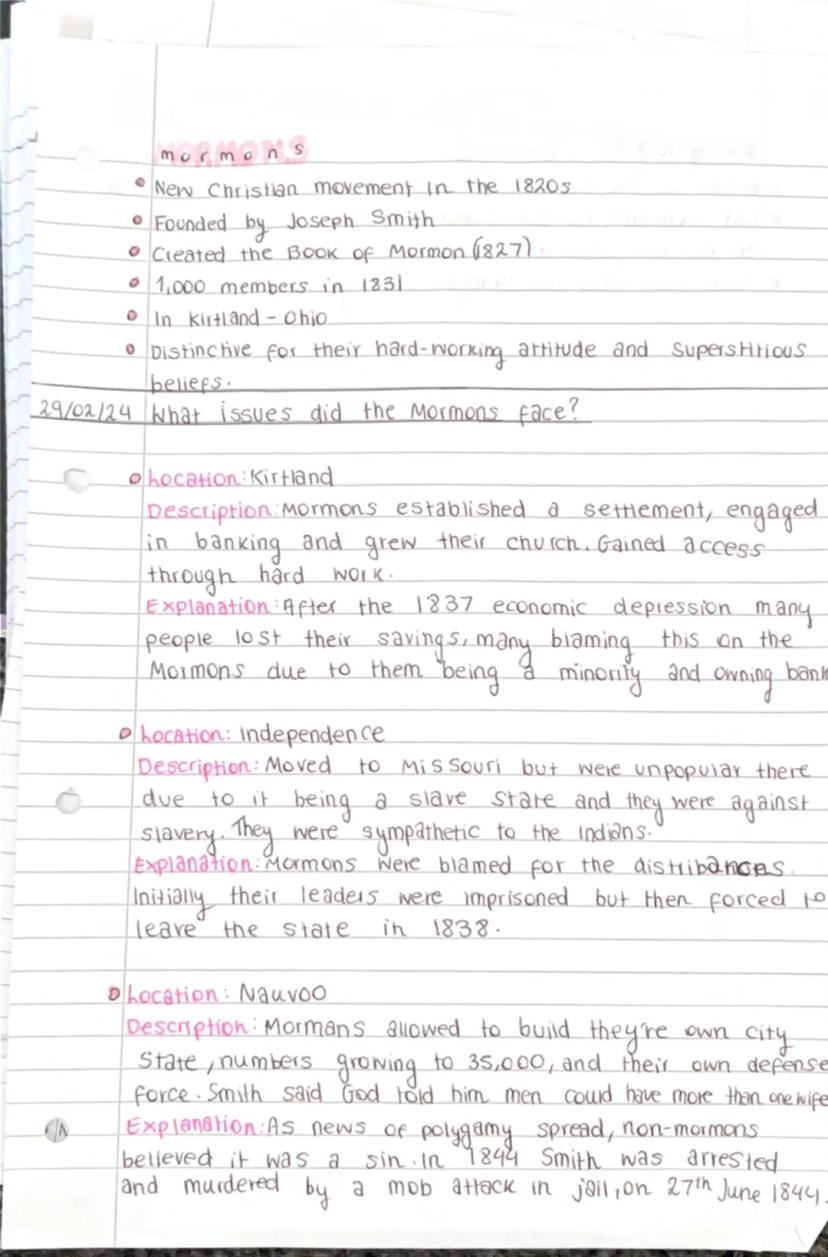 mormons
New Christian movement in the 1820s
Founded by Joseph Smith
Created the Book of Mormon (1827)
1,000 members in 1831
In Kirtland - Ohio
Distinctive for their hard-working attitude and superstitious
beliefs.
29/02/24 What issues did the Mormons face?
Location: Kirtland
Description: Mormons established a settlement, engaged
in banking and grew their church. Gained access
through hard work.
Explanation: After the 1837 economic depression many
people lost their savings, many blaming this on the
Mormons due to them being a minority and owning bank
Location: Independence
Description: Moved to Missouri but were unpopular there
due to it being a slave state and they were against
slavery. They were sympathetic to the Indians.
Explanation: Mormons were blamed for the distribances.
Initially their leaders were imprisoned but then forced to
leave the state in 1838.
Location: Nauvoo
Description: Mormans allowed to build they're own city
State, numbers growing to 35,000, and their own defense
force. Smith said God told him men could have more than one wife
Explanation: As news of polygamy spread, non-mormons
believed it was a sin. In 1844 Smith was arrested
and murdered by a mob attack in jail, on 27th June 1844.